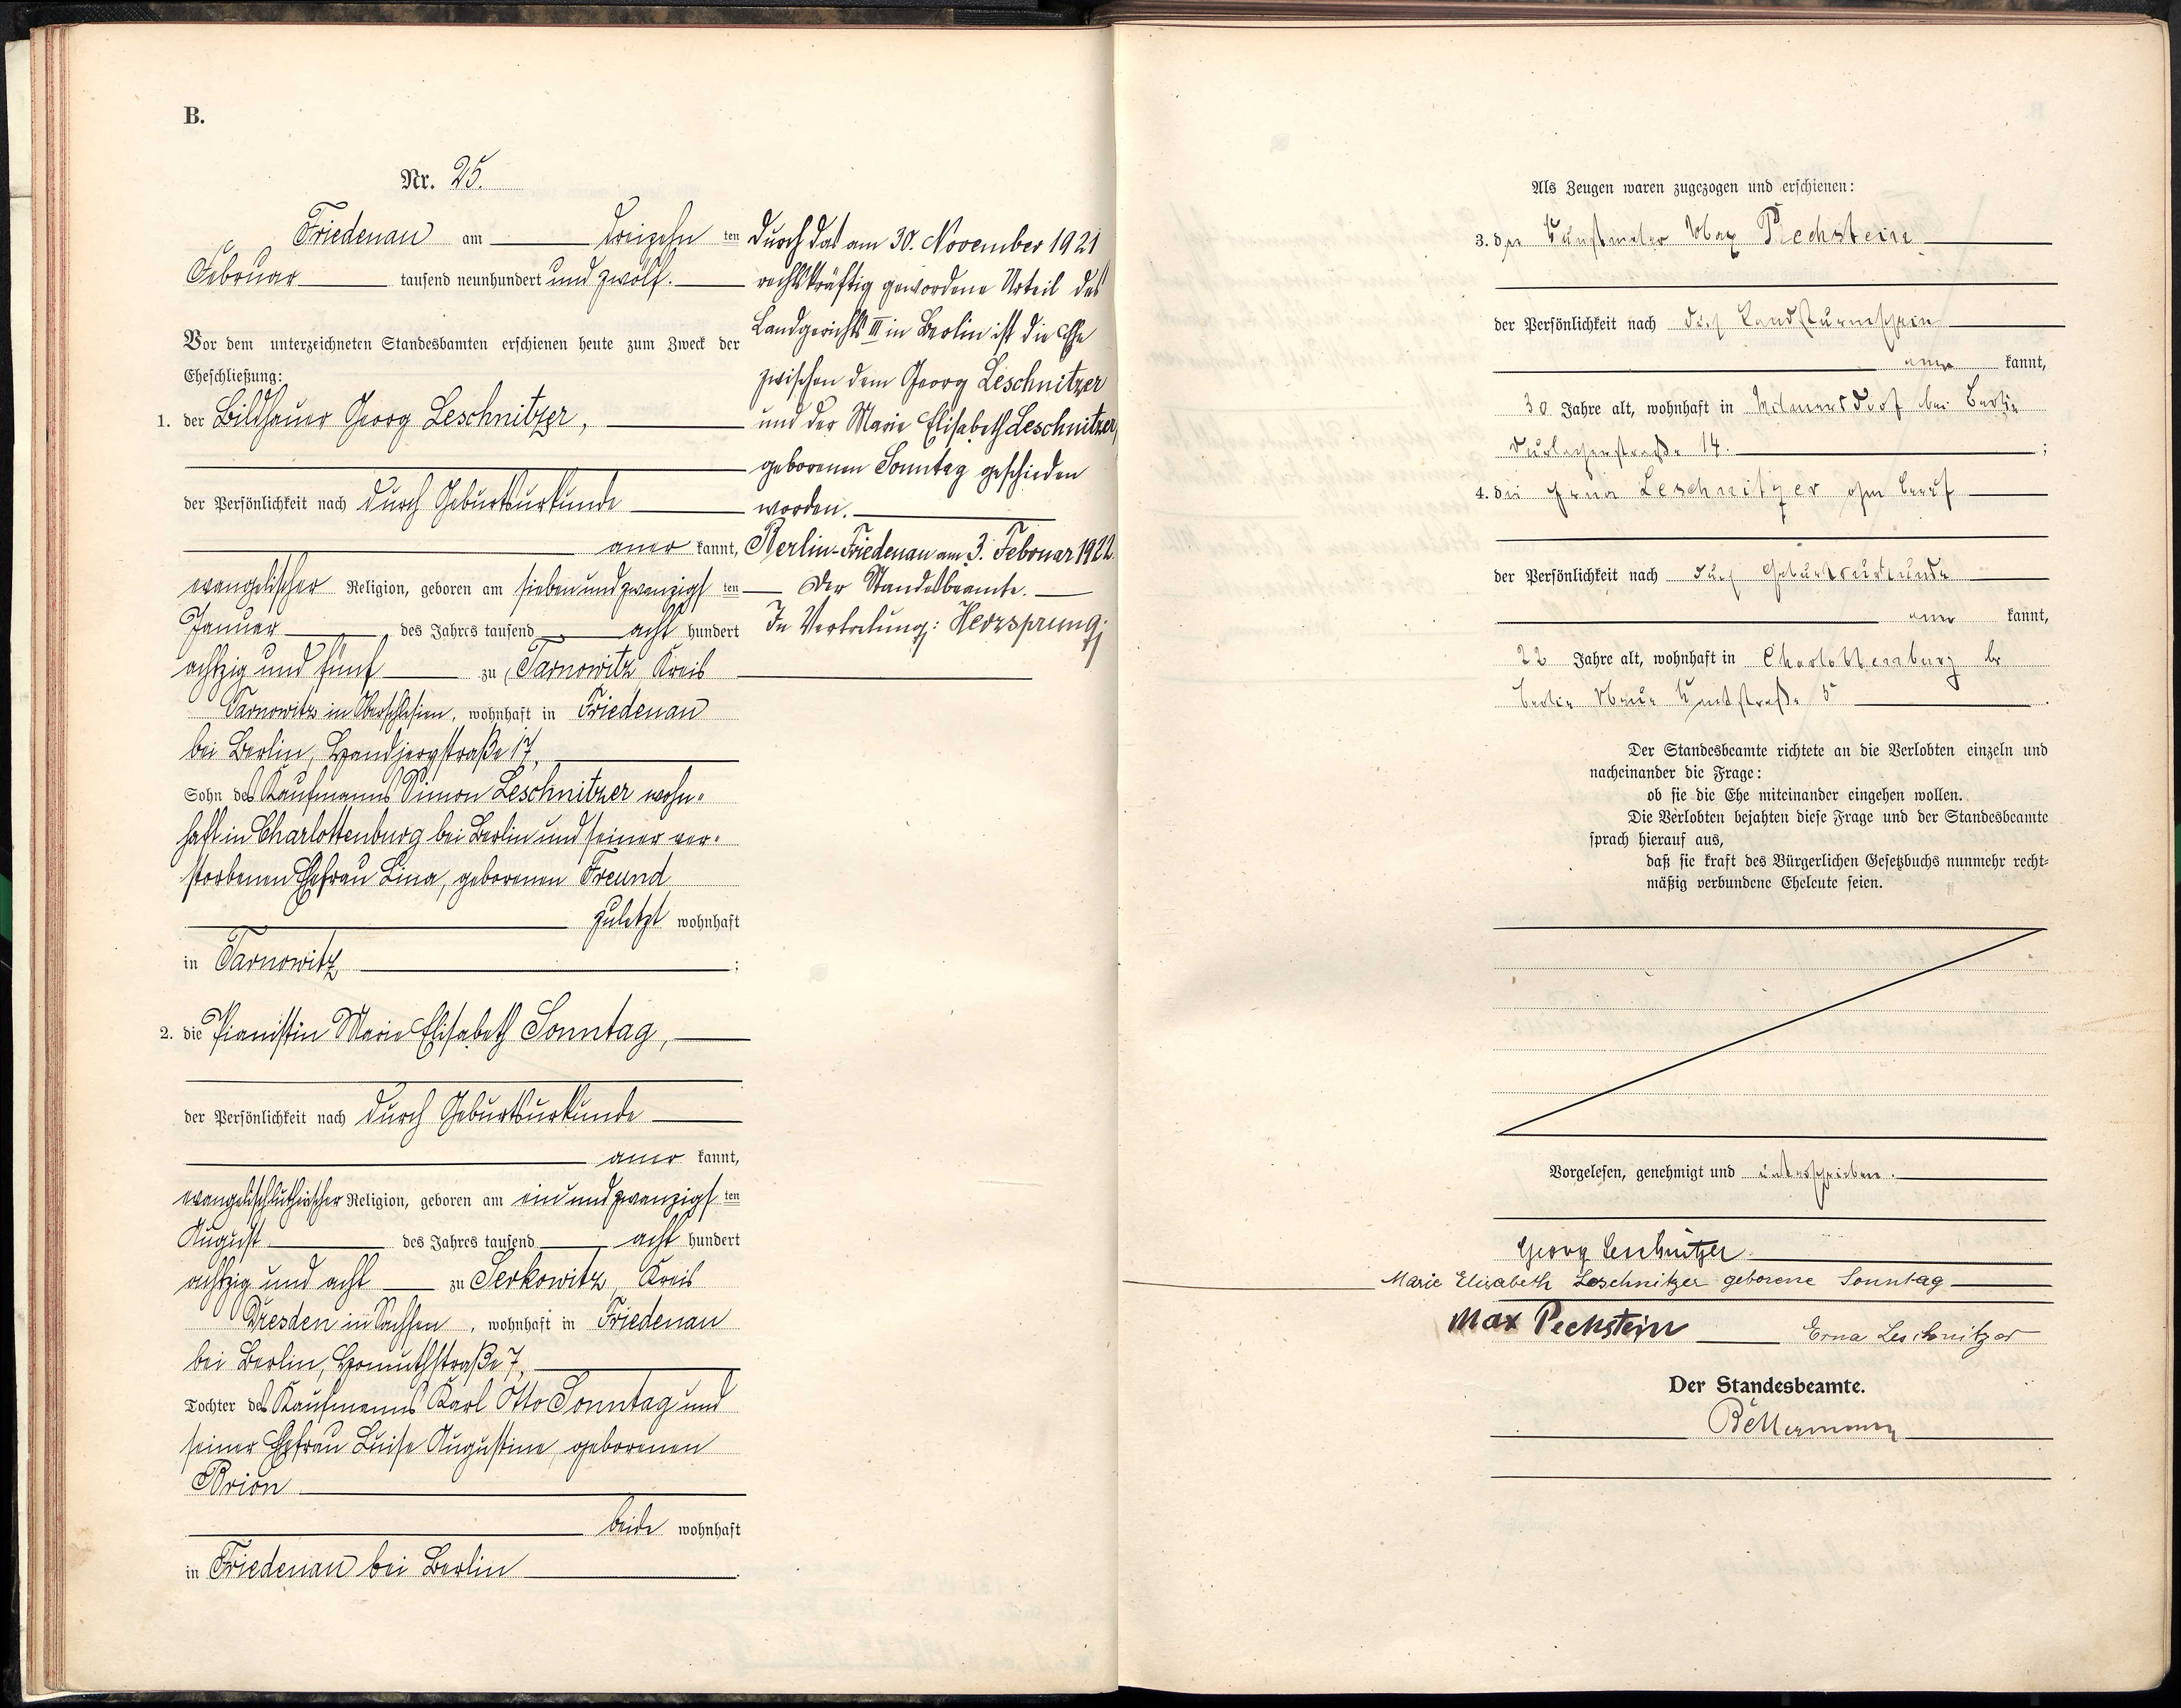 B.
Nr. 25.
Friedenau am dreizehn ten
Februar tausend neunhundert und zwölf.
Vor dem unterzeichneten Standesbamten erschienen heute zum Zweck der
Eheschließung:
1. der Bildhauer Georg Leschnitzer,
der Persönlichkeit nach durch Geburtsurkunde
aner kannt,
evangelischer Religion, geboren am siebenundzwanzigs ten
Januar des Jahres tausend acht hundert
achtzig und fünf zu Tarnowitz, Kreis
Tarnowitz in Oberschlesien, wohnhaft in Friedenau
bei Berlin, Handjerystraße 17,
Sohn des Kaufmanns Simon Leschnitzer wohn-
haft in Charlottenburg bei Berlin und seiner ver-
storbenen Ehefrau Lina, geborenen Freund
zuletzt wohnhaft
in Tarnowitz;
2. die Pianistin Marie Elisabeth Sonntag,
der Persönlichkeit nach durch Geburtsurkunde
aner kannt,
evangelischlutherischer Religion, geboren am einundzwanzigs ten
August des Jahres tausend acht hundert
achtzig und acht zu Serkowitz, Kreis
Dresden in Sachsen, wohnhaft in Friedenau
bei Berlin, Homuthstraße 7,
Tochter des Kaufmanns Karl Otto Sonntag und
seiner Ehefrau Luise Augustine, geborenen
Brion
beide wohnhaft
in Friedenau bei Berlin.
Durch das am 30. November 1921
rechtskräftig gewordene Urteil des
Landgerichts III in Berlin ist die Ehe
zwischen dem Georg Leschnitzer
und der Marie Elisabeth Leschnitzer,
geborenen Sonntag geschieden
worden.
Berlin-Friedenau am 3. Februar 1922.
Der Standesbeamte.
In Vertretung: Herzsprung.
Als Zeugen waren zugezogen und erschienen:
3. der Kunstmaler Max Pechstein
der Persönlichkeit nach durch Landsturmschein
aner kannt,
30 Jahre alt, wohnhaft in Wilmersdorf bei Berlin
Durlacherstraße 14.;
4. die Erna Leschnitzer ohne Beruf
der Persönlichkeit nach durch Geburtsurkunde
aner kannt,
22 Jahre alt, wohnhaft in Charlottenburg bei
Berlin Neue Kantstraße 5.
Der Standesbeamte richtete an die Verlobten einzeln und
nacheinander die Frage:
ob sie die Ehe miteinander eingehen wollen.
Die Verlobten bejahten diese Frage und der Standesbeamte
sprach hierauf aus,
daß sie kraft des Bürgerlichen Gesetzbuchs nunmehr recht-
mäßig verbundene Eheleute seien.
Vorgelesen, genehmigt und unterschrieben.
Georg Leschnitzer
Marie Elisabeth Leschnitzer geborene Sonntag
Max Pechstein Erna Leschnitzer
Der Standesbeamte.
Bellermann